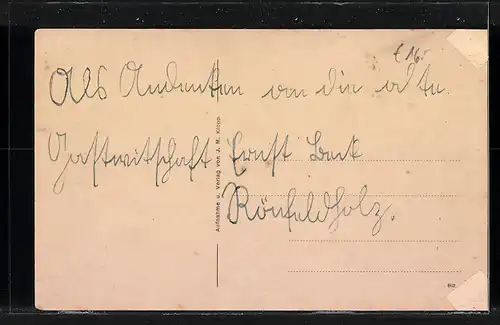 € 16,-
Als Andenken an die alte.
Gastwitschaft Ernst Beck
Rönfeldholz.
Aufnahme u. Verlag von J. M. Klopp